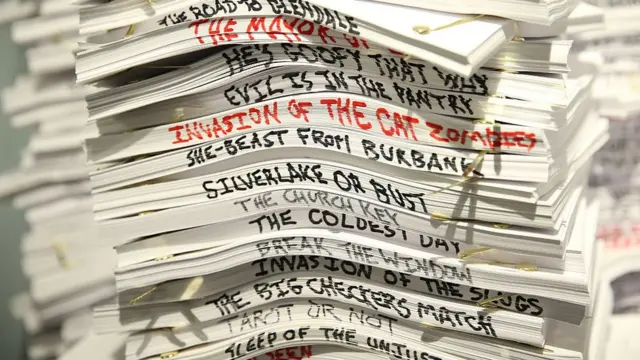 THE ROAD TO GLENDALE
THE MAYOR OF
HE'S GOOFY THAT WAY
EVIL IS IN THE PANTRY
INVASION OF THE CAT ZOMBIES
SHE-BEAST FROM BURBANK
SILVERLAKE OR BUST
THE CHURCH KEY
THE COLDEST DAY
BREAK THE WINDOW
INVASION OF THE SLUGS
THE BIG CHECKERS MATCH
TAROT OR NOT
SLEEP OF THE UNJUST